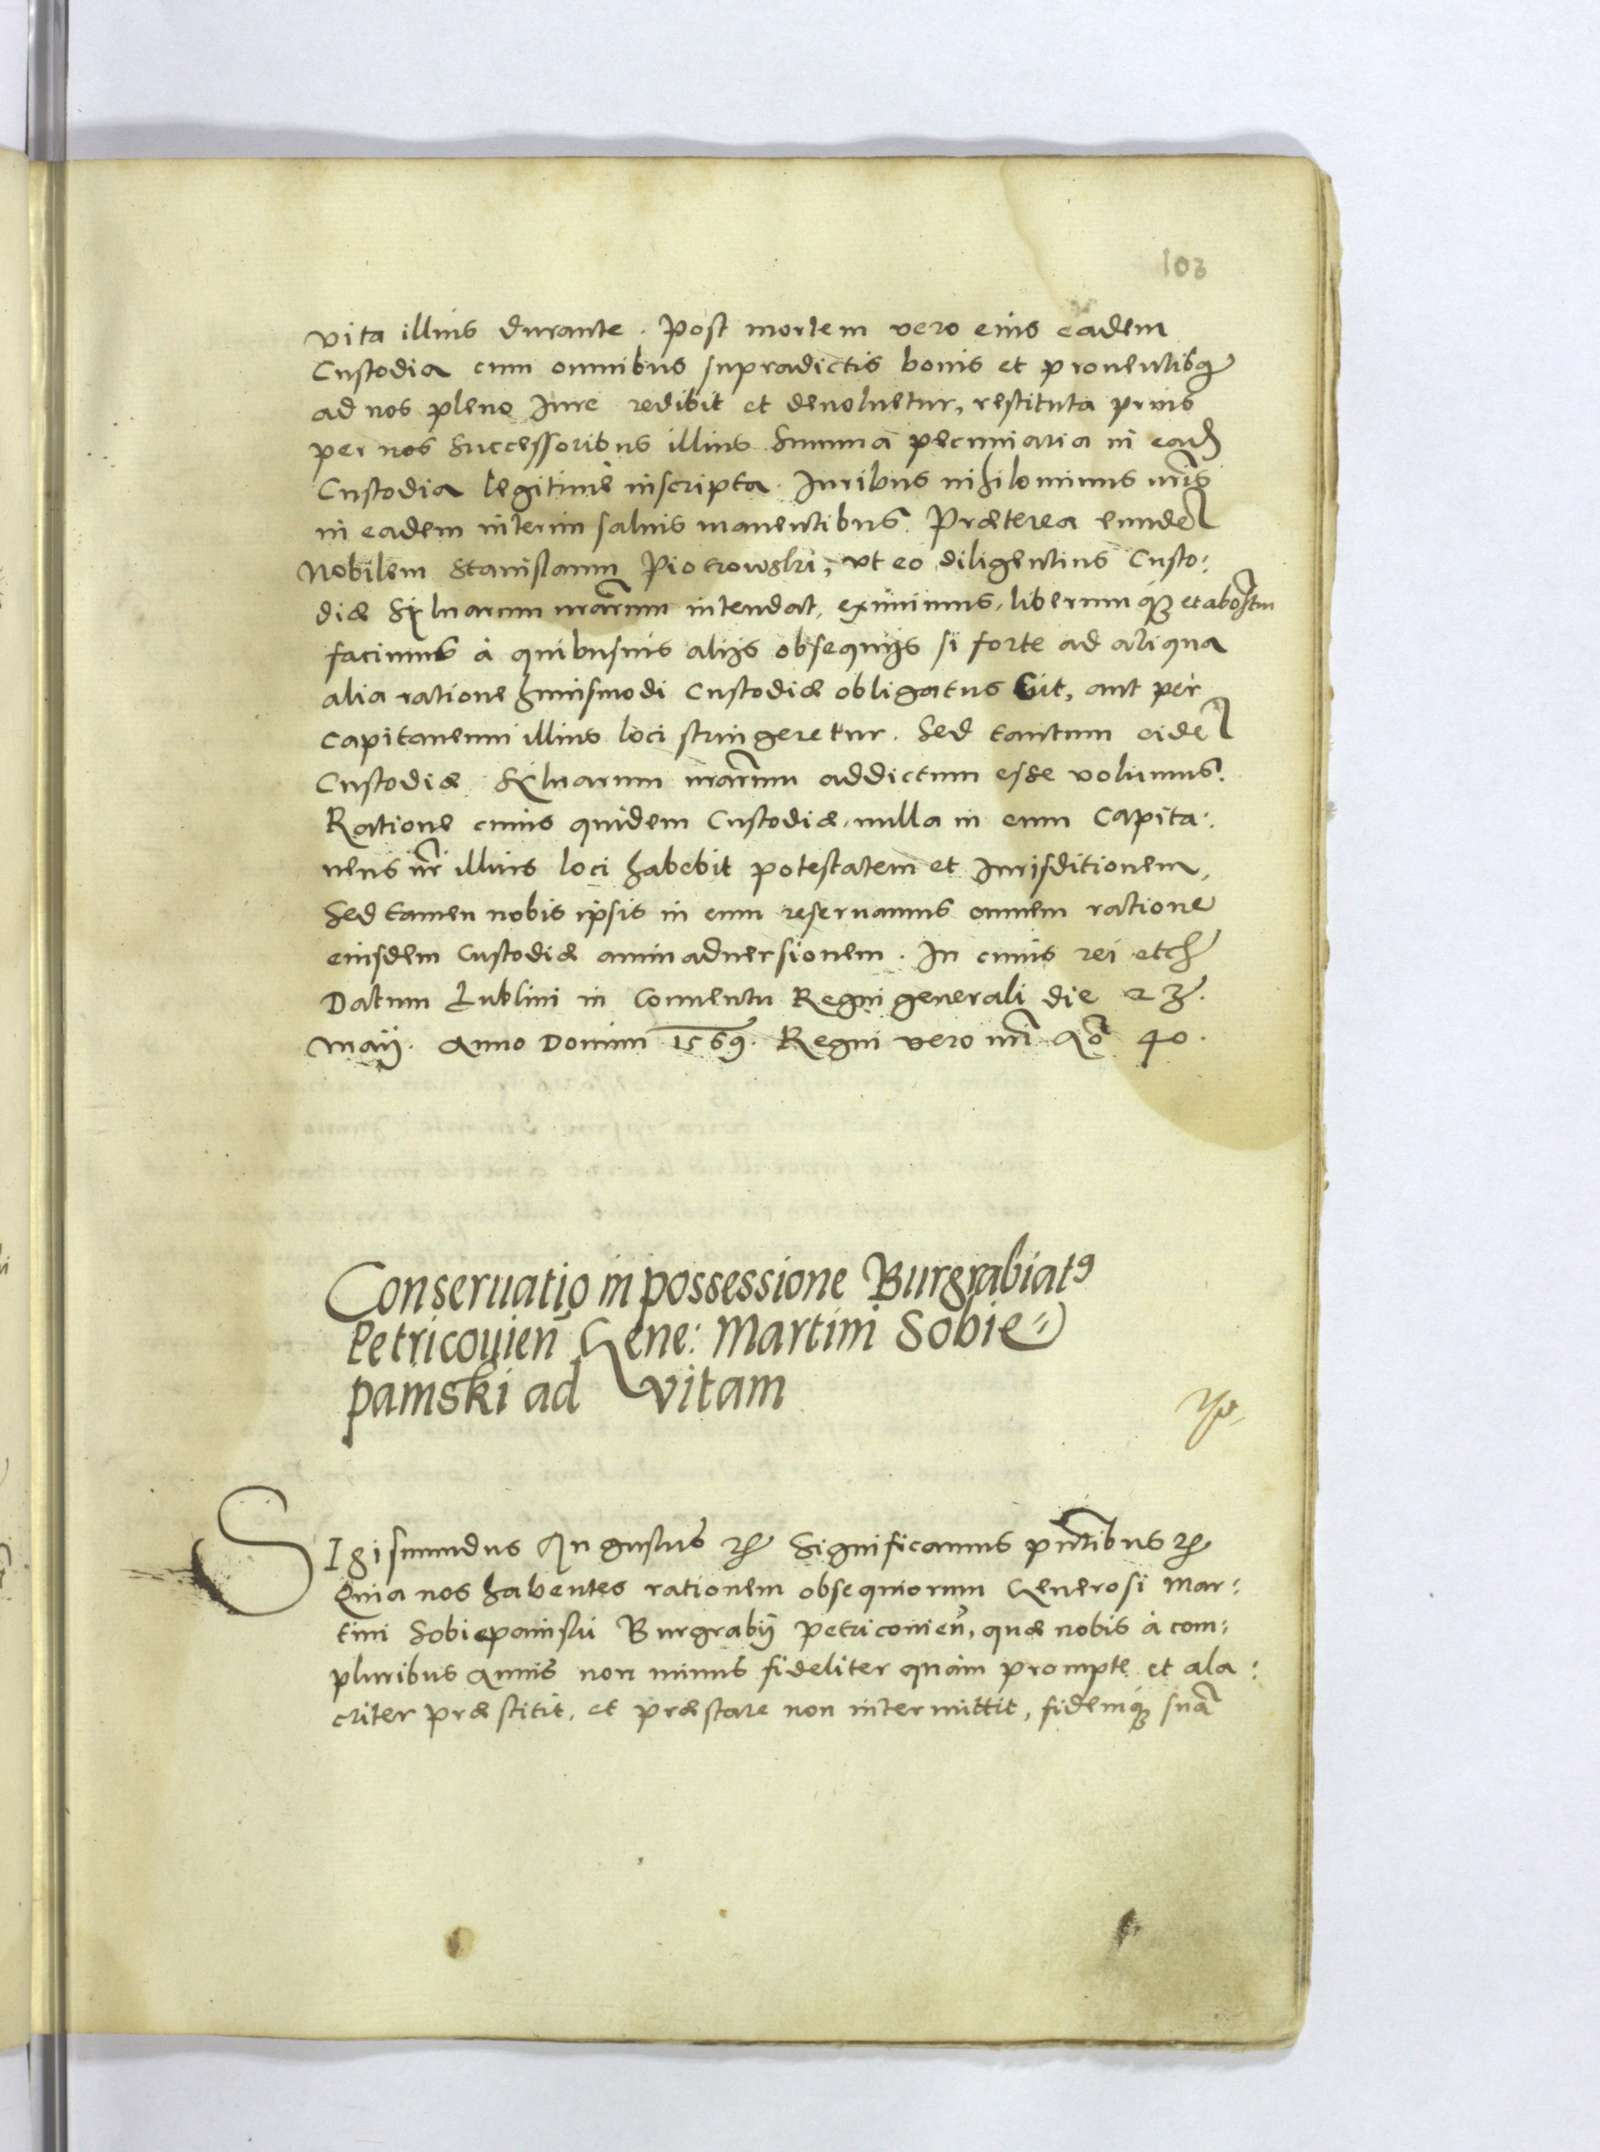 103
vita illius durante. Post mortem vero eius eadem
Custodia cum omnibus supradictis bonis et prouentibq
ad nos pleno Iure redibit et deuoluetur, restituta prius
per nos Successoribus illius Summa pecuniaria in eadē
Custodia legitimè inscripta. Iuribus nihilominus nr̃is
in eadem interim saluis manentibus. Præterea eundē
Nobilem Stanislaum Piotrowski, vt eo diligentius Custo:
diæ Syluarum nrārum intendat, eximimus, liberumq et
facimus à quibusuis alijs obsequijs si forte ad aliqua
alia ratione huiusmodi Custodiæ obligatus sit, aut per
Capitaneum illius loci stringeretur. Sed tantum eidē
Custodiæ Syluarum nrārum addictum esse volumus.
Ratione cuius quidem Custodiæ, nulla in eum Capita:
neus nr̃ illius loci habebit potestatem et Iurisditionem,
Sed tamen nobis ipsis in eum reseruamus omnem ratione
eiusdem Custodiæ animaduersionem. In cuius rei etc̃
Datum Lublini in Conuentu Regni generali die 23.
Maij. Anno Domini 1569. Regni vero nr̃i Aō 40.
Conseruatio in possessione Burgrabiatꝰ
Petricouien̄ Gene: Martini Sobie=
panski ad vitam
SIgismundus Augustus ꝛc̃ Significamus pñtibus ꝛc̃
Quia nos habentes rationem obsequiorum Generosi Mar:
tini Sobiepanski Burgrabij Petricouien̄, quæ nobis à com:
pluribus annis non minus fideliter quàm prompte et ala:
criter præstitit, et præstare non intermittit, fidemq suā